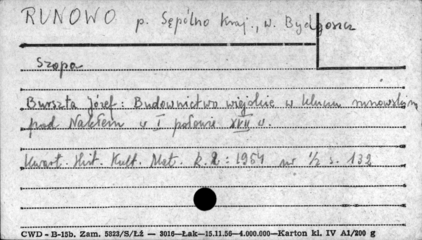 RUNOWO p. Sępólno Kraj., w. Bydgoszcz
Szopa
Burszta Józef: Budownictwo wiejskie w kluczu runowskim
pod Nakłem w I połowie XVII w.
Kwart. Hist. Kult. Mat. R. 2: 1954 nr 1/2 s. 132
CWD - B-15b. Zam. 5823/S/Łż — 3016—Łak—15.11.56—4.000.000—Karton kl. IV A1/200 g